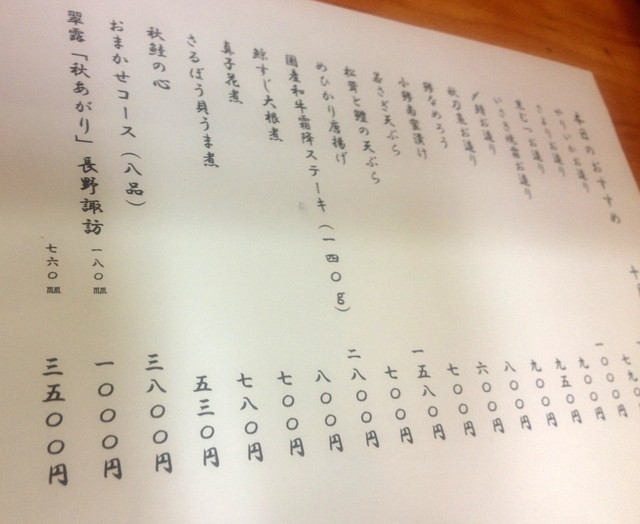 本日のおすすめ
やりいかお造り
さよりお造り
黒むつお造り 一〇〇〇円
いさき焼霜お造り 九〇〇円
〆鯖お造り 九五〇円
秋刀魚お造り 九〇〇円
鯵なめろう 八〇〇円
小鯵南蛮漬け 六〇〇円
若さぎ天ぷら 七〇〇円
松茸と鱧の天ぷら 一五八〇円
めひかり唐揚げ 七〇〇円
国産和牛霜降ステーキ(一四〇g) 二八〇〇円
鯨すじ大根煮 八〇〇円
真子花煮 七〇〇円
さるぼう貝うま煮 七八〇円
秋鮭の心 五三〇円
おまかせコース(八品) 三八〇〇円
翠露「秋あがり」長野諏訪 一八〇㎜ 一〇〇〇円
七六〇㎜ 三五〇〇円